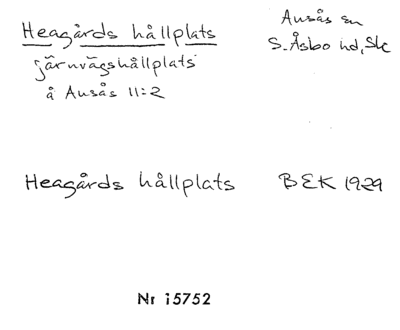 Heagårds hållplats
Ausås sn
S. Åsbo hd, Sk
järnvägshållplats
å Ausås 11:2
Heagårds hållplats BEK 1929
Nr 15752